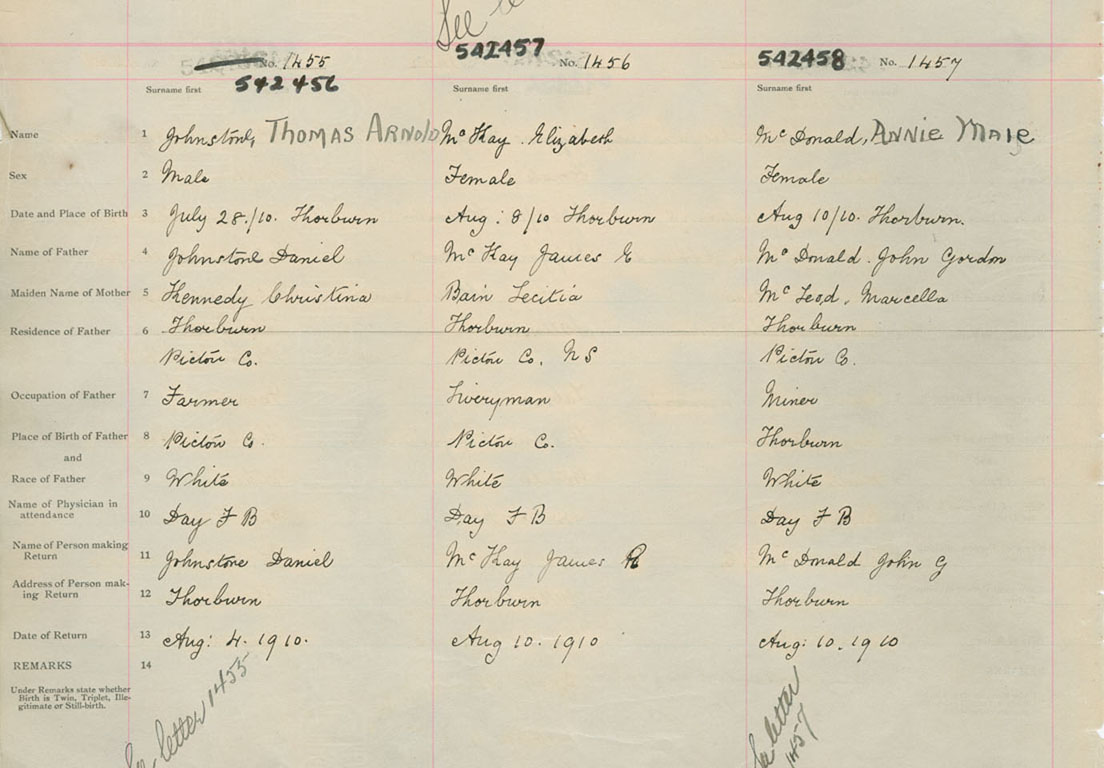 See
No. 1455 542457 No. 1456 542458 No. 1457
542456
Surname first Surname first Surname first
Name 1 Johnstone, THOMAS ARNOLD McKay. Elizabeth McDonald, ANNIE MAIE
Sex 2 Male Female Female
Date and Place of Birth 3 July 28./10. Thorburn Aug: 8/10 Thorburn Aug 10/10. Thorburn.
Name of Father 4 Johnstone Daniel McKay James McDonald. John Gordon
Maiden Name of Mother 5 Kennedy Christina Bain Lecitia McLeod, Marcella
Residence of Father 6 Thorburn Thorburn Thorburn
Pictou Co. Pictou Co. NS Pictou Co.
Occupation of Father 7 Farmer Liveryman Miner
Place of Birth of Father 8 Pictou Co. Pictou Co. Thorburn
and
Race of Father 9 White White White
Name of Physician in
attendance 10 Day F B Day F B Day F B
Name of Person making
Return 11 Johnstone Daniel McKay James R McDonald John G
Address of Person mak-
ing Return 12 Thorburn Thorburn Thorburn
Date of Return 13 Aug: 4. 1910. Aug 10. 1910 Aug: 10. 1910
REMARKS 14
Under Remarks state whether
Birth is Twin, Triplet, Ille-
gitimate or Still-birth.
See letter 1455
See letter
1457